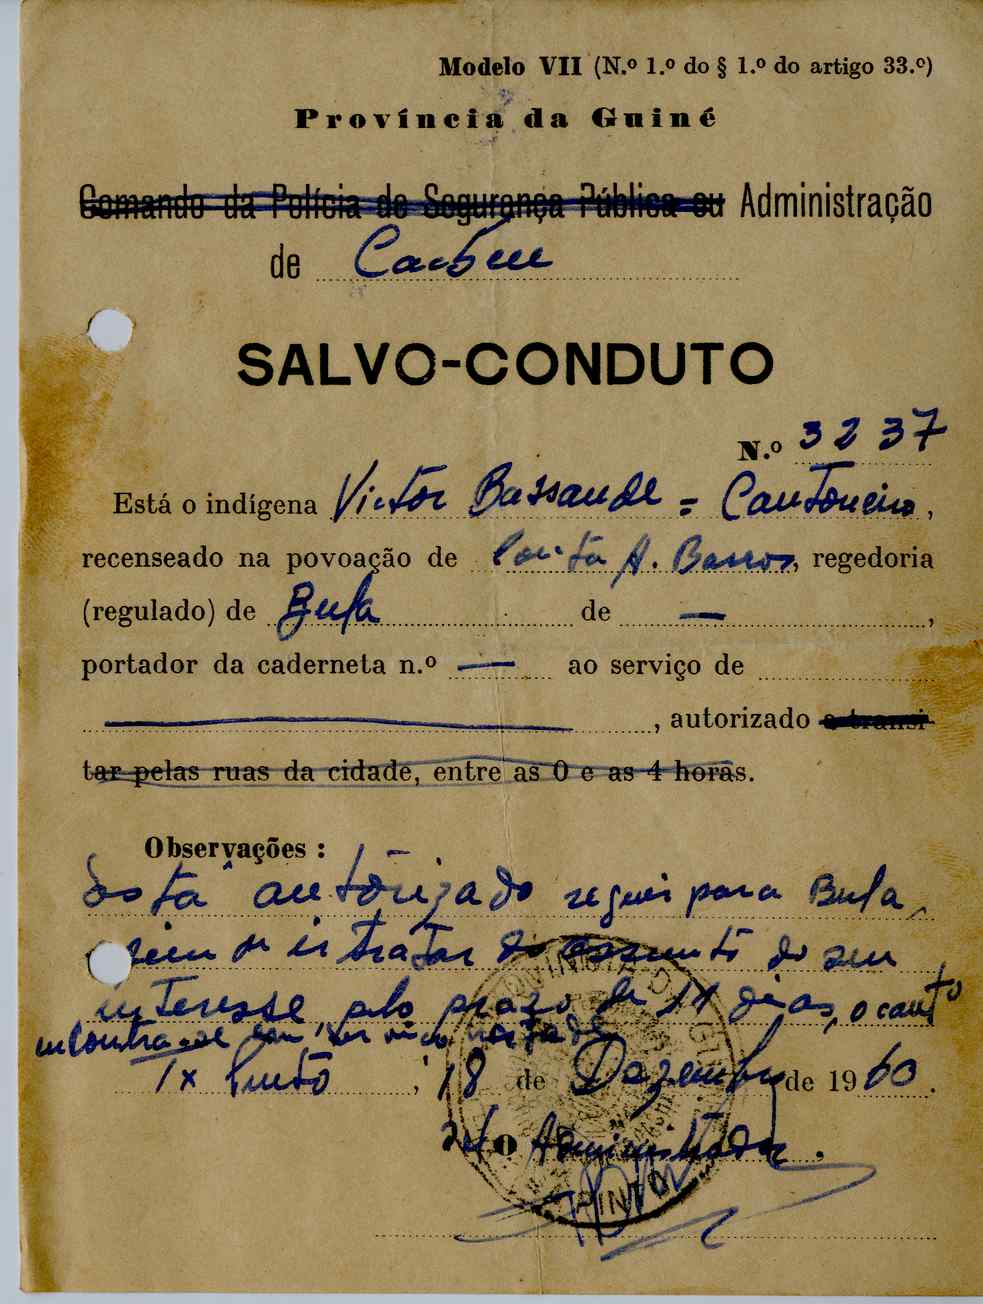 Modelo VII (N.º 1.º do § 1.º do artigo 33.º)
Província da Guiné
Comando da Polícia de Segurança Pública ou Administração
de
SALVO-CONDUTO
N.º 3237
Está o indígena Victor Bassande = Cantoneiro,
recenseado na povoação de A. Barros, regedoria
(regulado) de Bula de —,
portador da caderneta n.º — ao serviço de
—, autorizado a transi
tar pelas ruas da cidade, entre as 0 e as 4 horas.
Observações :
Está autorizado seguir para Bula,
ir tratar do assunto do seu
interesse pelo prazo de dias, o
encontra-se
, 18 de Dezembro de 1960.
O Administrador.
PINTO